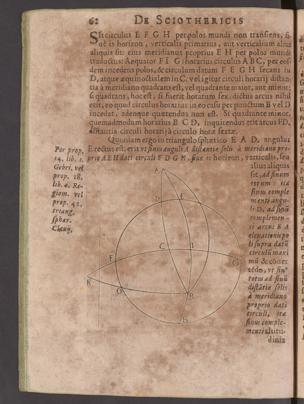 62 DE SCIOTHERICIS
Sit circulus E F G H per polos mundi non transiens, si-
ue is horizon, verticalis primarius, aut verticalium alius
aliquis sit: eius meridianus proprius E H per polos mundi
traductus: Aequator F I G horarius circulus A B C, per eos-
dem incedens polos, & circulum datum F E G H secans in
D, atque aequinoctialem in C, vel igitur circuli horarij distan-
tia à meridiano quadrans est, vel quadrante maior, aut minor;
si quadrans, hoc est, si fuerit horarum sex, distitus arcus nihil
erit, eo quod circulus horarius in eo casu per punctum B vel D
incedat, adeoque quaerendus non est. Si quadrante minor,
quemadmodum horarius B C D, inquirendus erit arcus F D,
distantia circuli horarij à circulo horae sextae.
Quoniam ergo in triangulo sphaerico E A D, angulus
E rectus est, erit vt sinus anguli A distantiae solis à meridiano pro-
prio A E H dati circuli F D G H, siue is horizon, verticalis, seu
Por prop.
14. lib. 1.
Gebri, vel
prop. 18.
lib. 4. Re-
giom. vel
prop. 42.
triang.
sphaer.
Clauij.
alius aliquis
sit, ad sinum
totum: ita
sinus comple-
menti angu-
li D, ad sinum
complemen-
ti arcus E A
eleuationis po-
li supra datũ
circulũ maxi-
mũ & contra
vt sin⁹
totus ad sinũ
distãtiae solis
à meridiano
proprio dati
circuli, ita
sinus comple-
menti altitu-
dinis
A
F
E
C
I
G
K
D
B
H